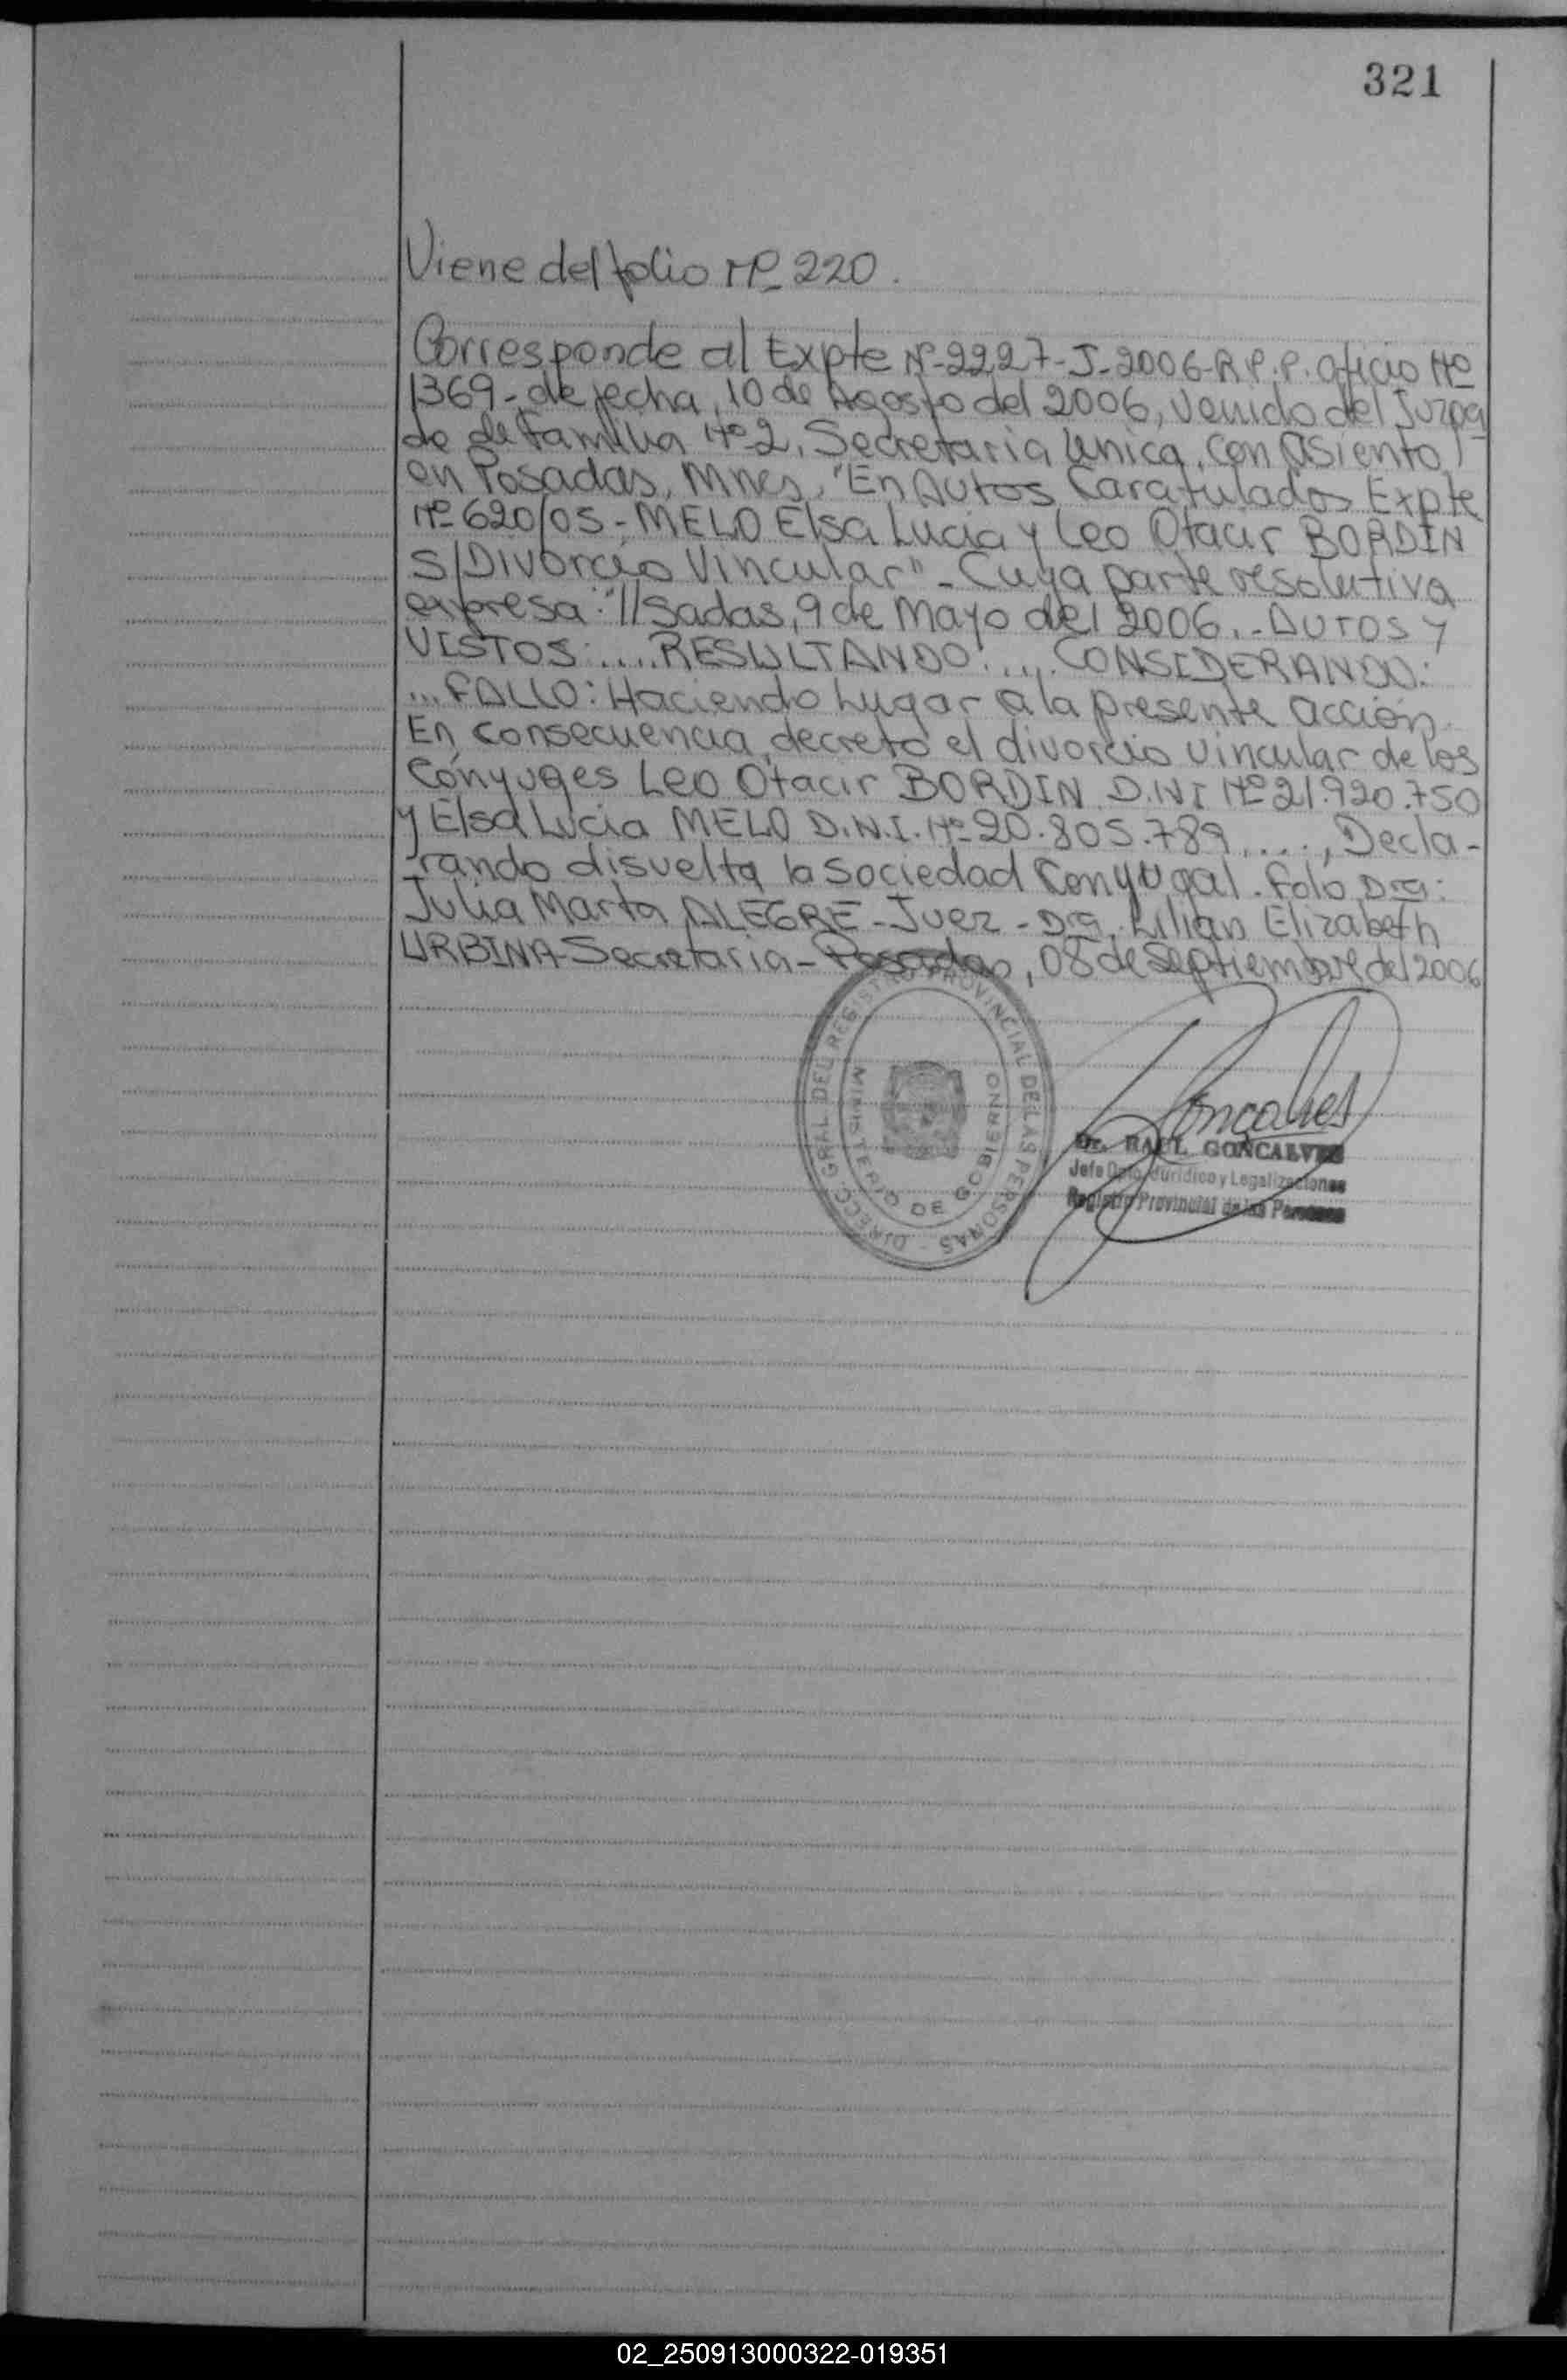 321
Viene del folio Nº 220.
Corresponde al Expte Nº-2227-J-2006-R.P.P. oficio Nº
1369-de fecha, 10 de Agosto del 2006, Venido del Juzga
do de Familia Nº 2, Secretaria Unica, con Asiento
en Posadas, Mnes, "En Autos Caratulados Expte
Nº 620/05-MELO Elsa Lucia y Leo Otacir BORDIN
S/Divorcio Vincular"- Cuya parte resolutiva
expresa: "//sadas, 9 de Mayo del 2006.-AUTOS Y
VISTOS:....RESULTANDO:.... CONSIDERANDO:
...FALLO: Haciendo Lugar a la presente acción.
En consecuencia, decreto el divorcio vincular de los
Cónyuges Leo Otacir BORDIN D.N.I Nº 21.920.750
y Elsa Lucia MELO D.N.I. Nº 20.805.789....., Decla-
rando disuelta la Sociedad Conyugal. Fdo Dra:
Julia Marta ALEGRE-Juez-Dra. Lilian Elizabeth
URBINA-Secretaria-Posadas, 08 de Septiembre del 2006
DIRECC. GRAL. DEL REGISTRO PROVINCIAL DE LAS PERSONAS
MINISTERIO DE GOBIERNO
Goncalves
Dr. RAUL GONCALVES
Jefe Dpto. Jurídico y Legalizaciones
Registro Provincial de las Personas
02_250913000322-019351